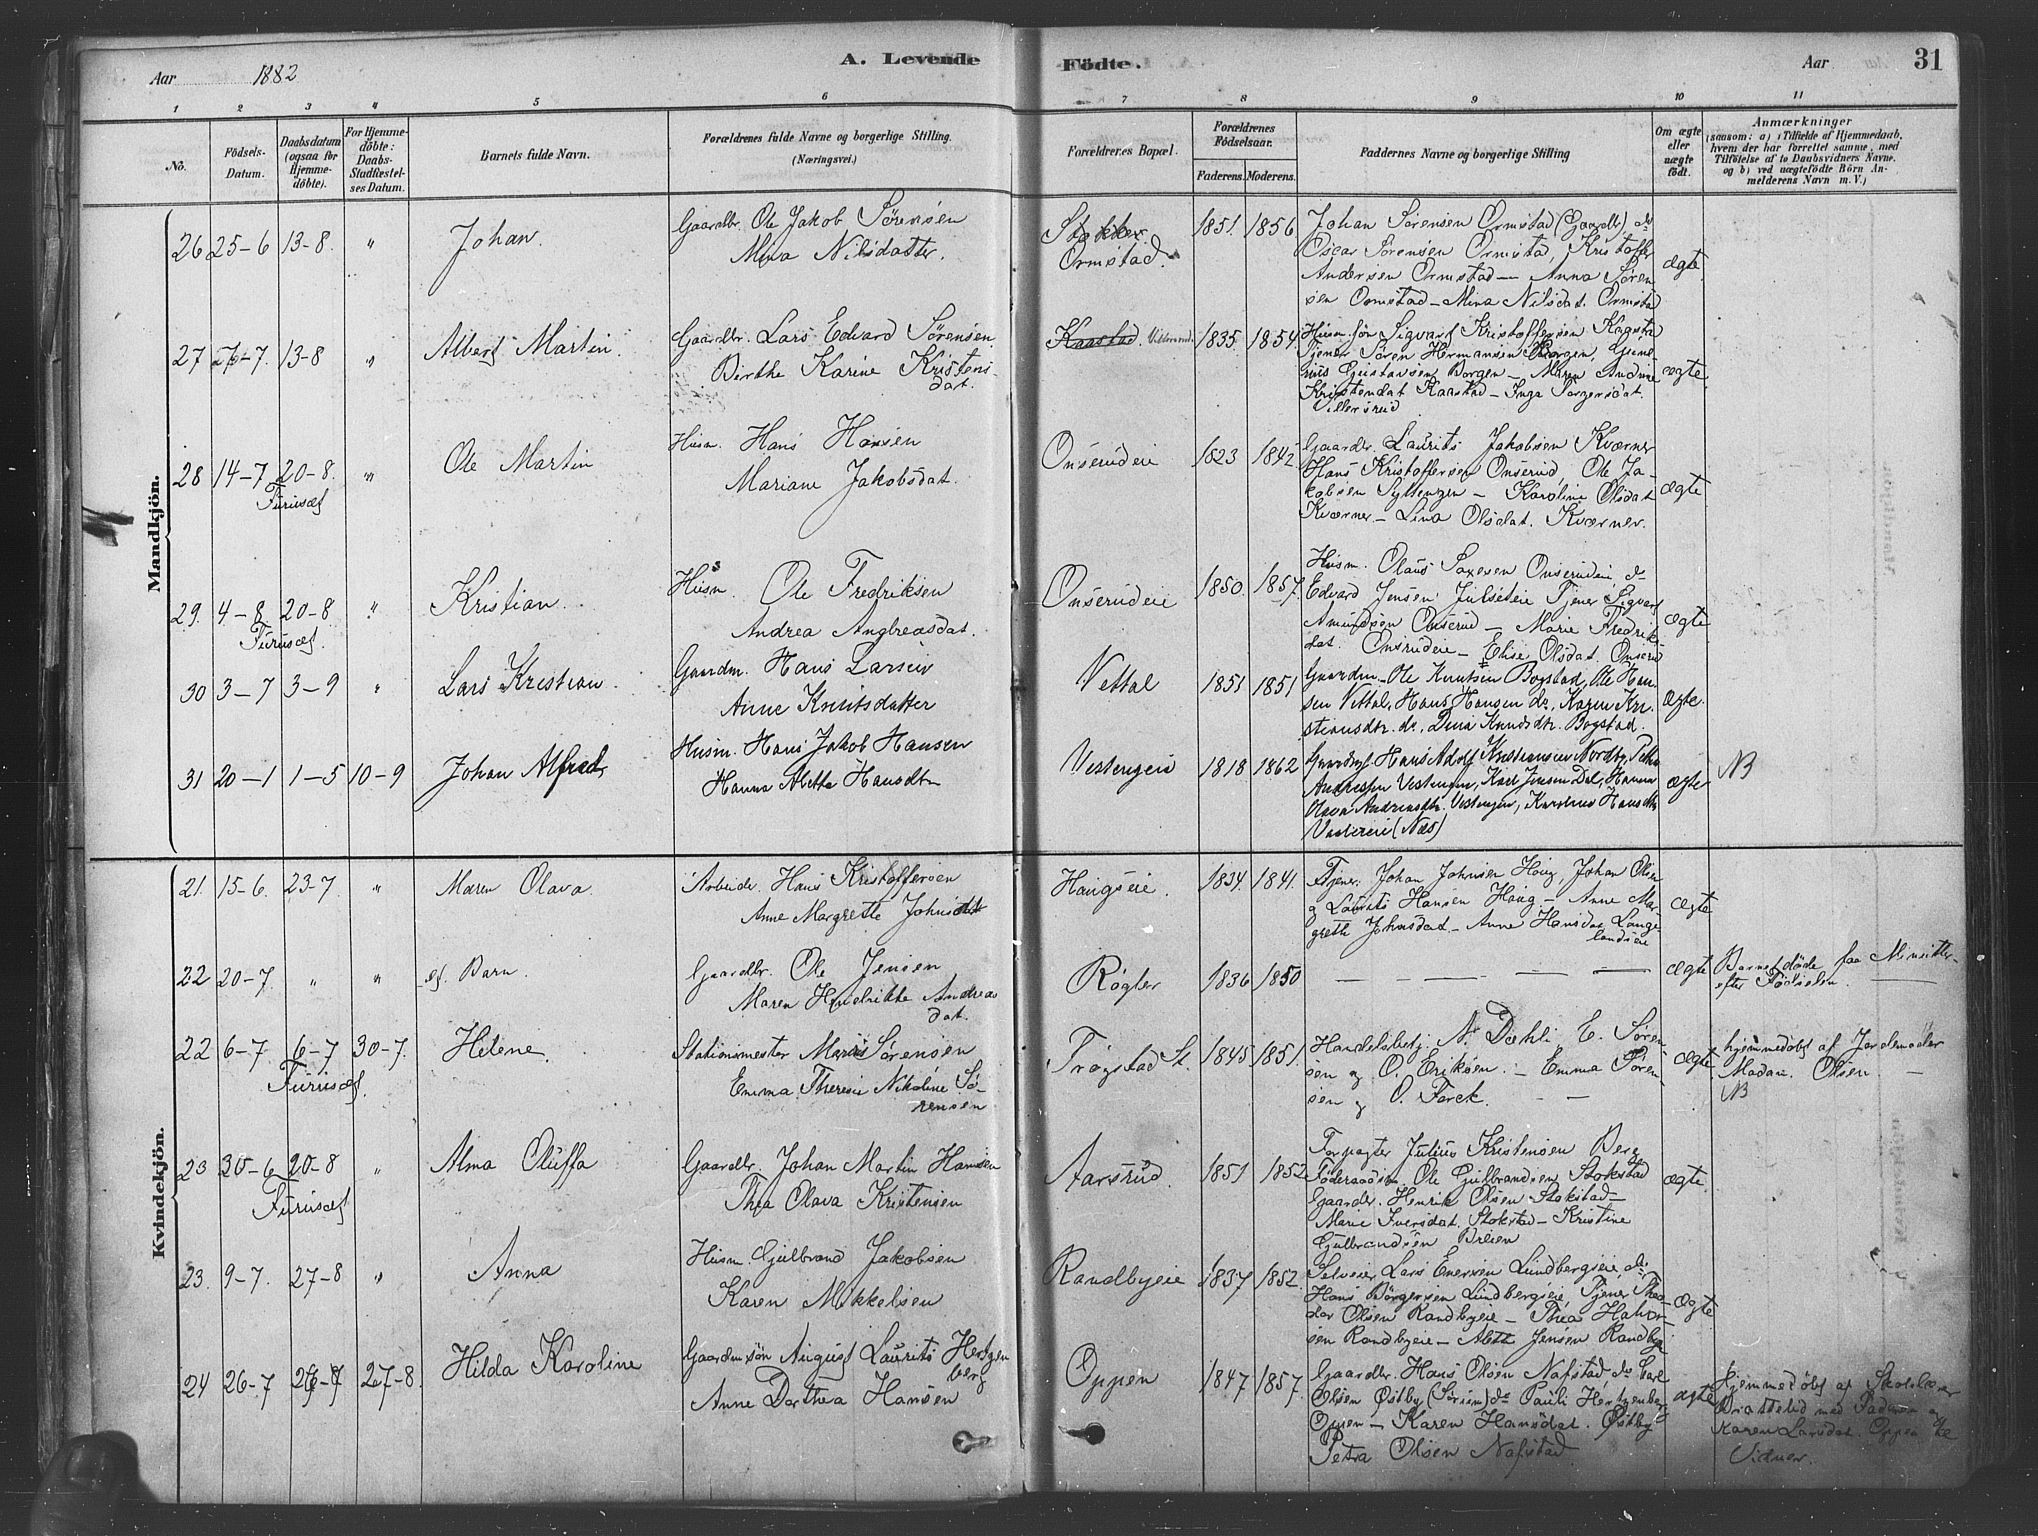 Aar 1882
A. Levende Födte.
Aar
31
1 2 3 4 5 6 7 8 9 10 11
No.
Födsels-
Datum.
Daabsdatum
(ogsaa for
Hjemme-
döbte).
For Hjemme-
döbte:
Daabs-
Stadfæstel-
ses Datum.
Barnets fulde Navn.
Forældrenes fulde Navne og borgerlige Stilling.
(Næringsvei.)
Forældrenes Bopæl.
Forældrenes
Födselsaar.
Faderens. Moderens.
Faddernes Navne og borgerlige Stilling
Om ægte
eller
uægte
födt.
Anmærkninger
(saasom: a) i Tilfælde af Hjemmedaab,
hvem der har forrettet samme, med
Tilföielse af to Daabsvidners Navne.
og b) ved uægtefödte Börn An-
melderens Navn m. V.)
Mandkjön.
26 25-6 13-8. " Johan.
Gaardbr. Ole Jakob Sørensen
Mina Nilsdatter.
Stokker
Ormstad.
1851. 1856
Johan Sørensen Ormstad (Gaardb) do
Oscar Sørensen Ormsta, Kristoffer
Andersen Ormstad — Anna Søren
sen Ormstad — Mina Nilsdat. Ormstad
ægte
27 7-7. 13-8 " Albert Martin.
Gaardbr. Lars Edvard Sørensen.
Birthe Karine Kristens
dat.
Kaastad.
1835. 1854
Husm. søn Sigvart Kristoffersen Kaasta
Tjener Søren Hermansen Borgen,
Gustavsen Borgen — Maren Andrine
Kristendat Kaastad — Inga
Villersrud
ægte
28 14-7 20-8. " Ole Martin
Furusæt
Husm. Hans Hansen
Mariane Jakobsdat.
Onserudeie
1823 1842
Gaardbr. Laurits Jakobsen Kværner
Hans Kristoffersen Onserud, Ole Ja-
kobsen — Karoline Olsdat
Kværner — Lina Olsdat. Kværner.
ægte
29. 4-8 20-8 " Kristian.
Furusæt.
Husm. Ole Fredriksen
Andrea Andreasdat.
Onserudeie
1850. 1857.
Husm. Olaus Onserudeie, do
Edvard Jensen Julseteie Tjener Sigvart
Amundsen Onserud — Marie Fredrik-
dat. Onsrudeie — Elise Olsdat Onseru
ægte
30 3-7 3-9 " Lars Kristian.
Gaardm. Hans Larsen
Anne Knutsdatter
Vettal
1851 1851
Gaardm. Ole Knutsen Bogstad, Ole Han-
sen Vettal, Hans Hansen do, Karen Kri-
stiansdtr. do., Dina Knudsdtr. Bogstad.
ægte.
31 20-1 1-5 10-9 Johan Alfred,
Husm. Hans Jakob Hansen
Hanna Alette Hansdtr
Vestengeie
1818 1862
Hans Adolf Kristiansen Nordby, Petter
Andreasen Vestengen, Karl Jensen Dal, Hanna
Olava Andreasdtr. Vestengen, Karoline Hansdtr
(Næs)
ægte
NB
Kvindekjön.
21. 15-6. 23-7. " Maren Olava.
Arbeider. Hans Kristoffersen
Anne Margrethe Johnsdatt
Haugseie.
1834. 1841.
Tjener. Johan Johnsen Haug, Johan Olsen
og Laurits Hansen Haug — Anne Mar-
grethe Johnsdat. — Anne Hansdat Lange
landseie
ægte
22 20-7. " " et Barn.
Gaardbr. Ole Jensen
Maren Hendrikke Andreas
dat.
Røgler
1836 1850
— — — —
ægte
Barnet døde faa Minutter
efter Fødselen. —
22 6-7 6-7 30-7. Helene.
Furusæt
Stationsmester Marius Sørensen
Emma Therese Nikoline Sø-
rensen
Trøgstad St.
1845 1851.
Handelsbetj. N. Dæhli, E. Søren-
sen og O. Eriksen. — Emma Søren-
sen og O. Torek. — —
ægte
hjemmedøbt af Jordemoder
Madam. Olsen —
NB
23 30-6 20-8 " Alma Oluffa
Furusæt
Gaardbr. Johan Martin Hansen
Thea Olava Kristensen
Aarsrud.
1851 1852
Forpagter Julius Kristensen Berg
Føderaadsm. Ole Gulbrandsen Stokstad
Gaardbr. Henrik Olsen Stokstad —
Marie Iversdat. Stokstad — Kristine
Gulbrandsen Breien
ægte
23. 9-7. 27-8 " Anna
Husm. Gulbrand Jakobsen
Karen Mikkelsen
Randbyeie
1837 1852.
Selveier Lars Enersen Lundbergseie, do
Hans Børgersen Lundbergseie, Tjener Theo-
dor Olsen Randbyeie — Thea Halvor-
sen Randbyeie — Aleth Jensen Randby
ægte
24 26-7 26-7 27-8. Hilda Karoline
Gaardmsøn August Laurits Hertzen
berg
Anne Dorthea Hansen
Oppen
1847 1857.
Gaardbr. Hans Olsen Nafstad do Carl
Olsen Østby (Sørum) do Pauli Hertzenberg
Oppen — Karen Hansdat. Østby
Petra Olsen Nafstad.
ægte
Hjemmedøbt af Skolelærer
Brattelid med Faderen og
Karen Larsdat. Oppen
Vidner.